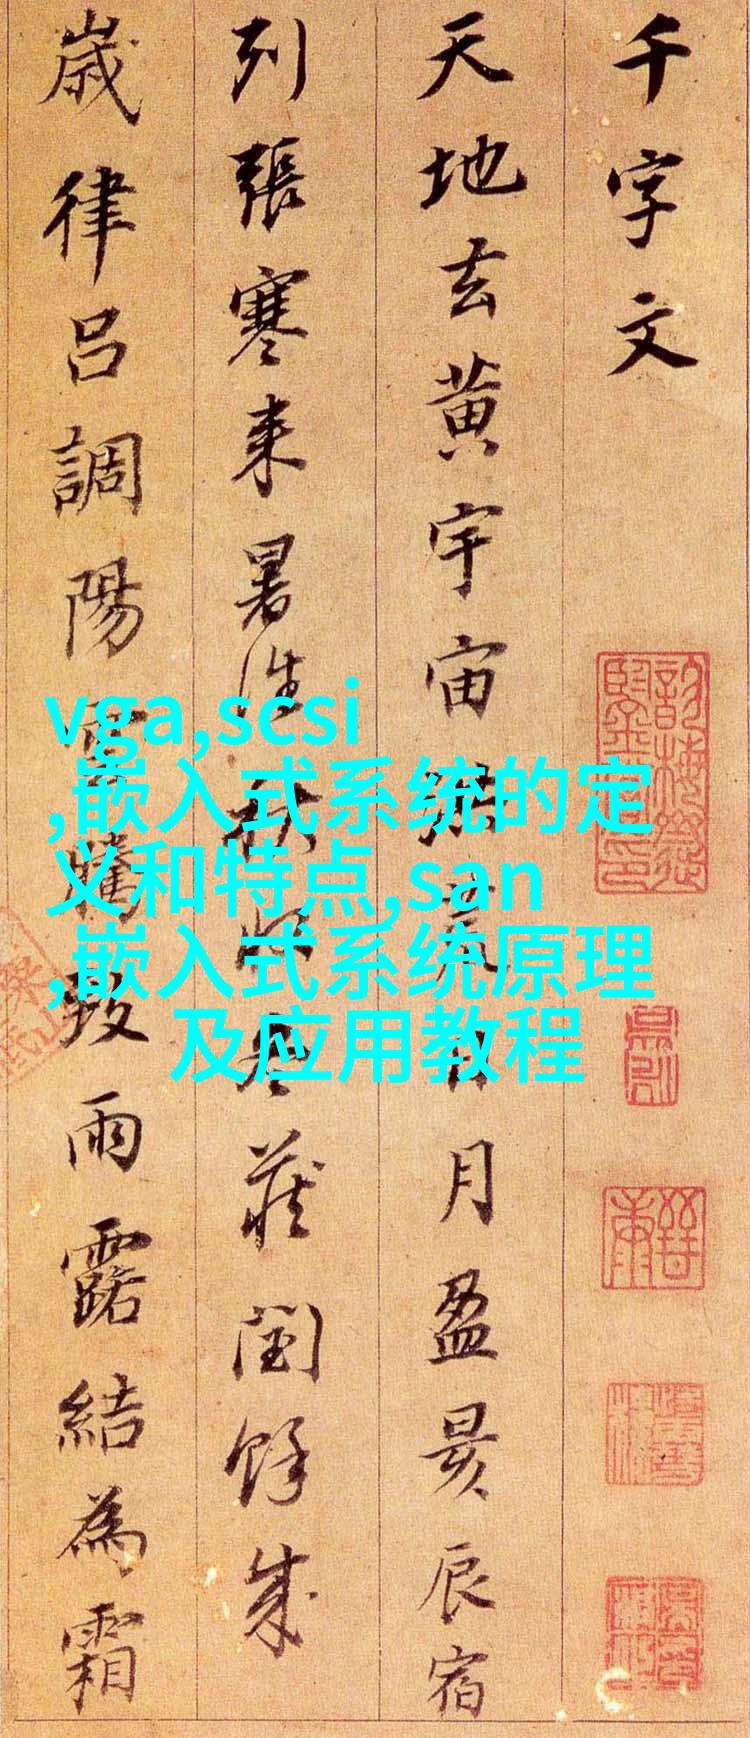 千字文
天地玄黄宇宙洪荒日月盈昃辰宿
列張寒来暑往秋收冬蔵閏餘成
歲律吕調陽雲騰致雨露結為霜
vga,scsi
,嵌入式系统的定
义和特点,san
,嵌入式系统原理
及应用教程